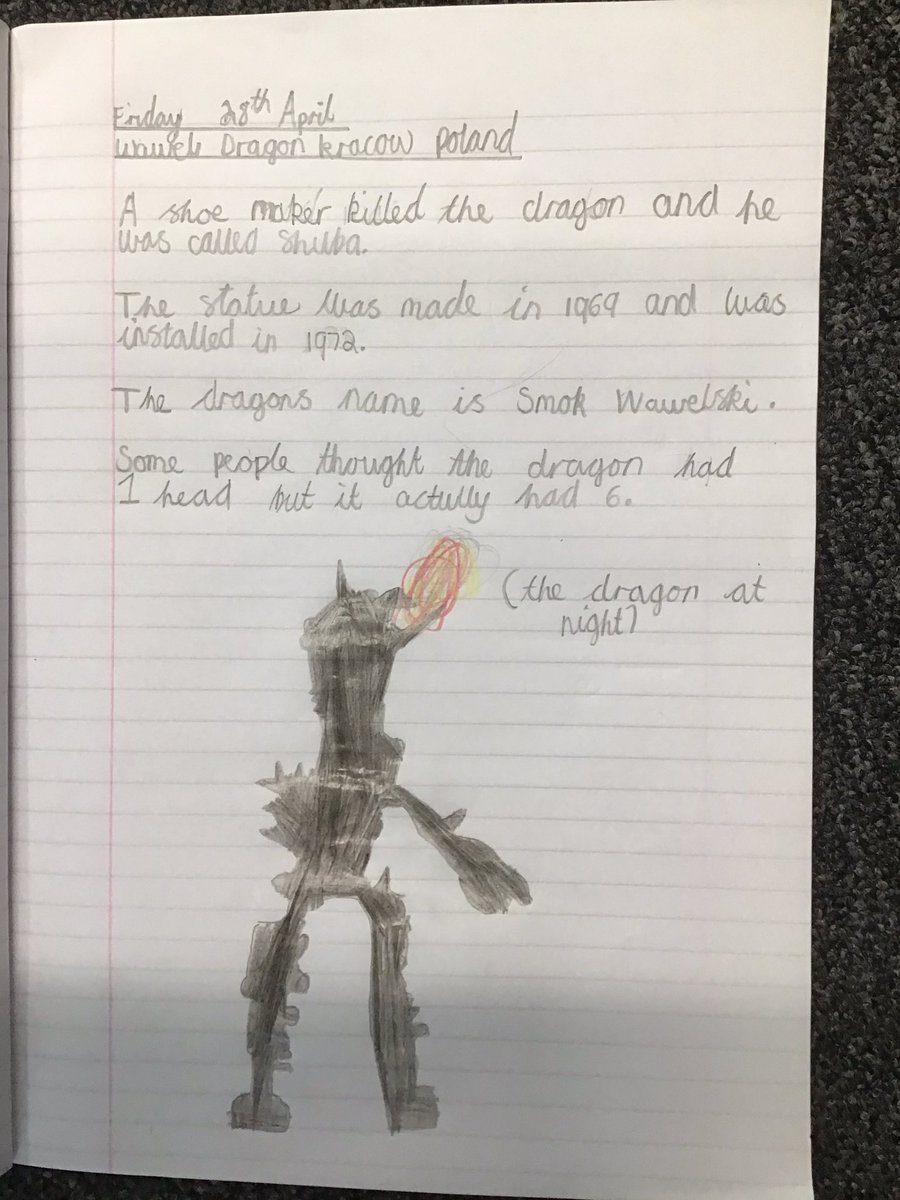 Friday 28th April
Wawel Dragon kracow poland
A shoe maker killed the dragon and he
was called Shuba.
The statue was made in 1969 and was
installed in 1972.
The dragons name is Smok Wawelski.
Some people thought the dragon had
1 head but it actully had 6.
(the dragon at
night)